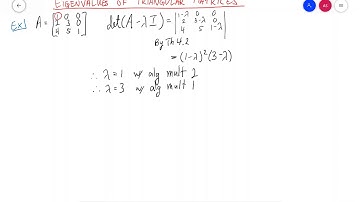 EIGENVALUES OF TRIANGULAR MATRICES
Ex) A = [1 0 0; 2 3 0; 4 5 1] det(A-λI) = |1-λ 0 0; 2 3-λ 0; 4 5 1-λ|
By Th 4.2
= (1-λ)²(3-λ)
∴ λ=1 w/ alg mult 2
∴ λ=3 w/ alg mult 1